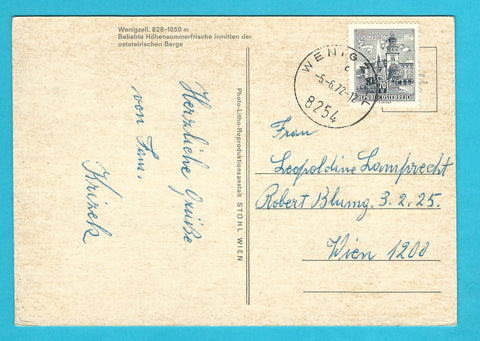 Wenigzell. 828-1050 m
Beliebte Höhensommerfrische inmitten der
oststeirischen Berge
Herzliche Grüße
von Fam.
Krizek
Photo-Litho-Reproduktionsanstalt STOHL WIEN
WENIGZ
-5.-6.72-12
8254
REPUBLIK ÖSTERREICH
Frau
Leopoldine Lamprecht
Robert Blumg. 3.2.25.
Wien 1200